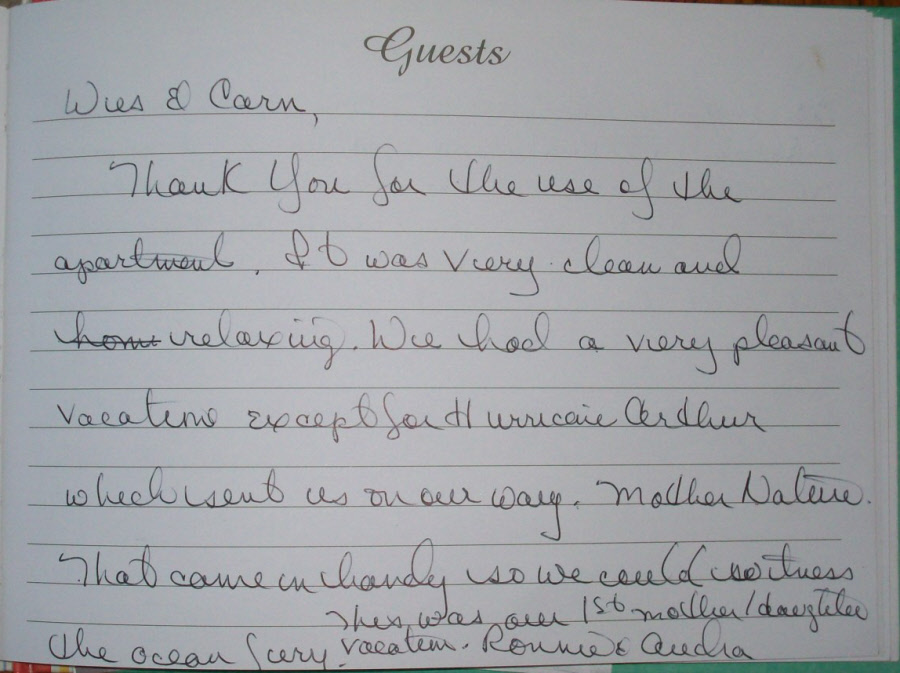 Guests
Wes & Carn,
Thank You for the use of the
apartment. It was very clean and
relaxing. We had a very pleasant
vacation except for Hurricaie Arthur
which sent us on our way. Mother Nature.
That came in handy so we could witness
This was our 1st mother/daughter
the ocean fury. vacation. Ronnie &